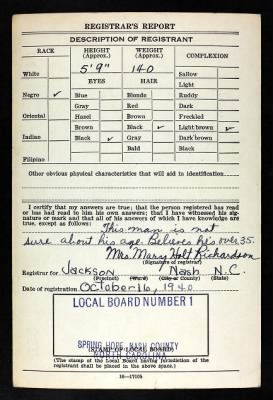 REGISTRAR'S REPORT
DESCRIPTION OF REGISTRANT
RACE HEIGHT (Approx.) WEIGHT (Approx.) COMPLEXION
5' 9" 140
White Sallow
EYES HAIR Light
Negro ✓ Blue Blonde Ruddy
Gray Red Dark
Oriental Hazel Brown Freckled
Brown Black ✓ Light brown ✓
Indian Black ✓ Gray Dark brown
Bald Black
Filipino
Other obvious physical characteristics that will aid in identification
I certify that my answers are true; that the person registered has read
or has had read to him his own answers; that I have witnessed his signa-
ture or mark and that all of his answers of which I have knowledge are
true, except as follows:
This man is not
sure about his age. Believes he's over 35.
Mrs. Mary Holt Richardson
(Signature of registrar)
Registrar for Jackson Nash N.C.
(Precinct) (Ward) (City or county) (State)
Date of registration October 16, 1940
LOCAL BOARD NUMBER 1
SPRING HOPE, NASH COUNTY
NORTH CAROLINA
(STAMP OF LOCAL BOARD)
(The stamp of the Local Board having jurisdiction of the
registrant shall be placed in the above space.)
16—17105